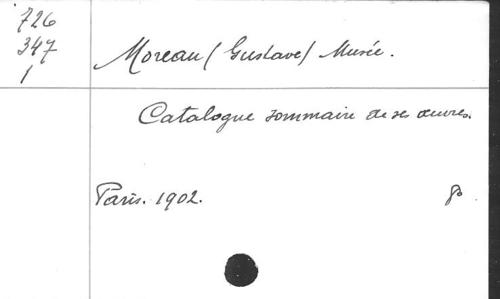 726
347
1
Moreau (Gustave) Musée.
Catalogue sommaire de ses œuvres.
Paris. 1902.
8º